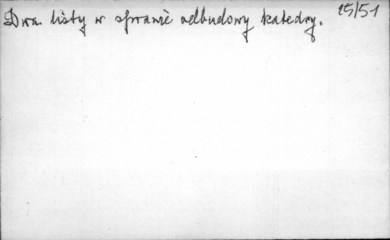 Dwa listy w sprawie odbudowy katedry. 25/51